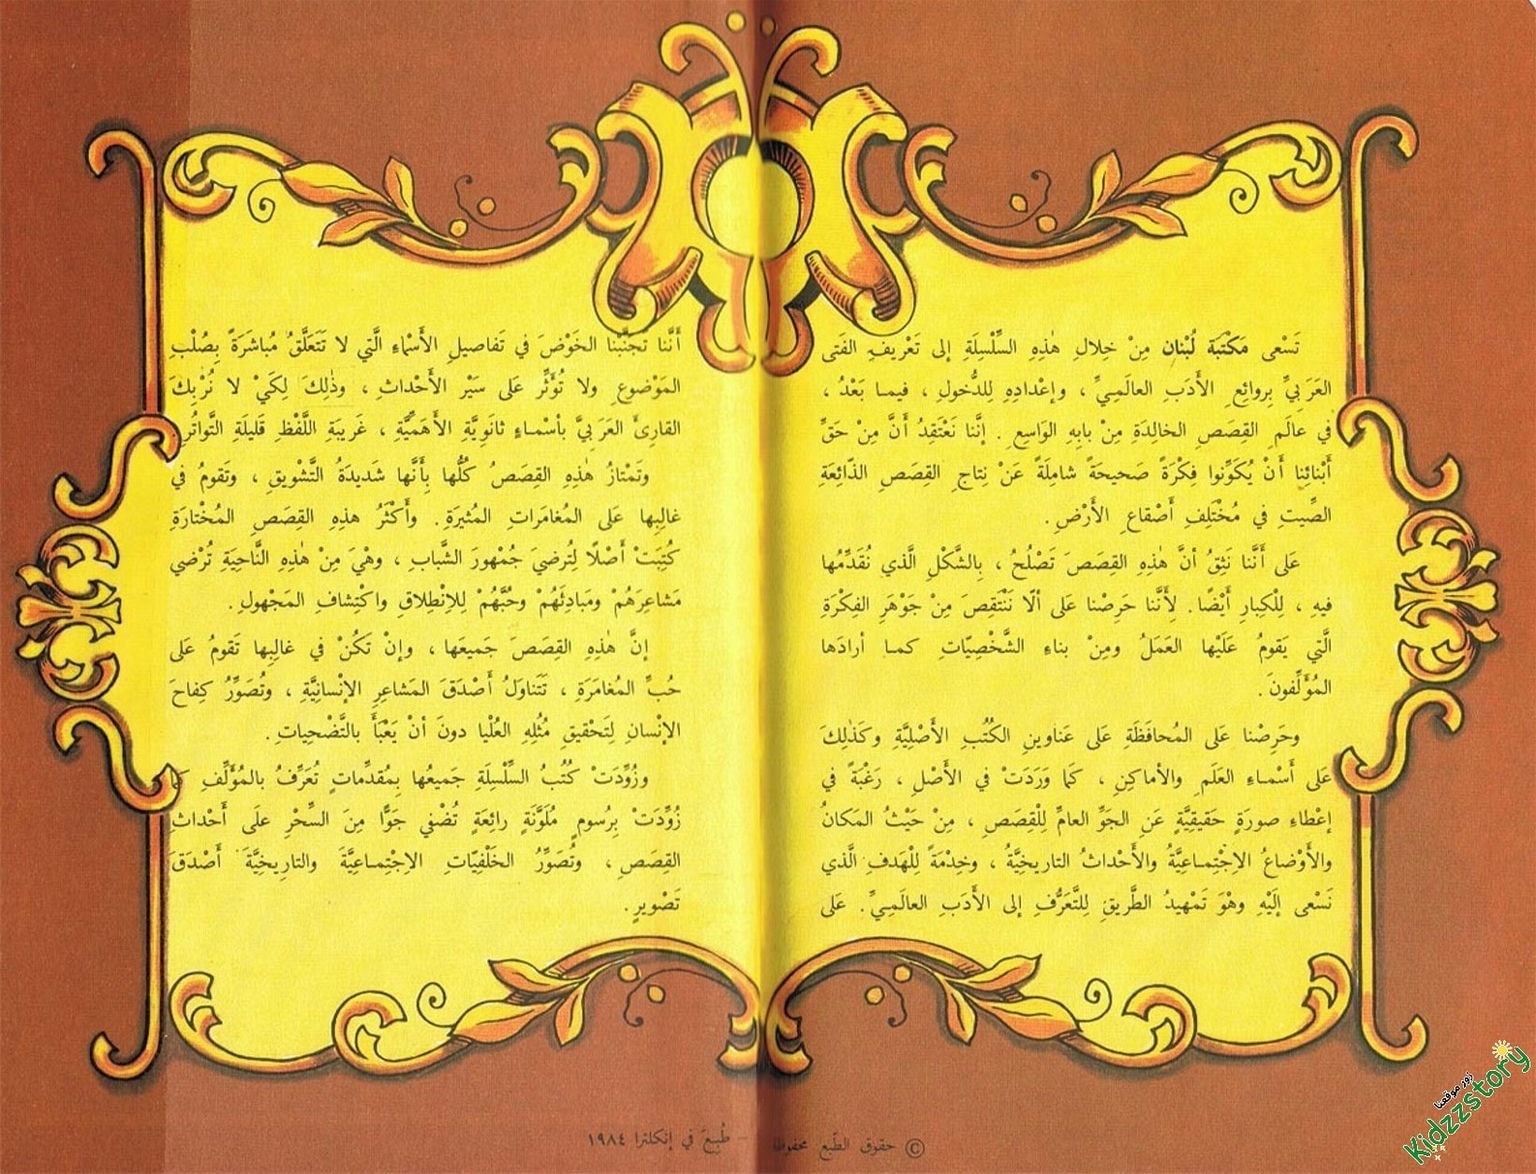 تَسْعى مَكْتَبَة لُبْنان مِنْ خِلالِ هٰذِهِ السِّلْسِلَةِ إلى تَعْريفِ الفَتى
العَرَبِيِّ بِروائِعِ الأَدَبِ العالَمِيِّ ، وإعْدادِهِ لِلدُّخولِ ، فيما بَعْدُ ،
في عالَمِ القِصَصِ الخالِدَةِ مِنْ بابِهِ الوَاسِعِ . إنَّنا نَعْتَقِدُ أَنَّ مِنْ حَقِّ
أَبْنائِنا أَنْ يُكَوِّنوا فِكْرَةً صَحيحَةً شامِلَةً عَنْ نِتاجِ القِصَصِ الذّائِعَةِ
الصِّيتِ في مُخْتَلِفِ أَصْقاعِ الأَرْضِ .
عَلى أَنَّنا نَثِقُ أنَّ هٰذِهِ القِصَصَ تَصْلُحُ ، بِالشَّكْلِ الَّذي نُقَدِّمُها
فيهِ ، لِلْكِبارِ أَيْضًا . لِأَنَّنا حَرِصْنا عَلى ألّا نَنْتَقِصَ مِنْ جَوْهَرِ الفِكْرَةِ
الَّتي يَقومُ عَلَيْها العَمَلُ ومِنْ بناءِ الشَّخْصِيّاتِ كما أرادَها
المُؤَلِّفونَ .
وحَرِصْنا عَلى المُحافَظَةِ عَلى عَناوينِ الكُتُبِ الأَصْلِيَّةِ وكَذٰلِكَ
عَلى أَسْماءِ العَلَمِ والأماكِنِ ، كَما وَرَدَتْ في الأَصْلِ ، رَغْبَةً في
إعْطاءِ صورَةٍ حَقيقِيَّةٍ عَنِ الجَوِّ العامِّ لِلْقِصَصِ ، مِنْ حَيْثُ المَكانُ
والأَوْضاعُ الاِجْتِماعِيَّةُ والأَحْداثُ التاريخِيَّةُ ، وخِدْمَةً لِلْهَدفِ الَّذي
نَسْعى إلَيْهِ وهْوَ تَمْهيدُ الطَّريقِ لِلتَّعَرُّفِ إلى الأَدَبِ العالَمِيِّ . عَلى
أَنَّنا تَجَنَّبْنا الخَوْضَ في تَفاصيلِ الأَسْماءِ الَّتي لا تَتَعَلَّقُ مُباشَرَةً بِصُلْبِ
المَوْضوعِ ولا تُؤَثِّرُ عَلى سَيْرِ الأَحْداثِ ، وذٰلِكَ لِكَيْ لا نُرْبِكَ
القارِئَ العَرَبِيَّ بأسْماءٍ ثانَوِيَّةِ الأَهَمِّيَّةِ ، غَريبَةِ اللَّفْظِ قَليلَةِ التَّواتُرِ .
وتَمْتازُ هٰذِهِ القِصَصُ كُلُّها بِأَنَّها شَديدَةُ التَّشْويقِ ، وتَقومُ في
غالِبِها عَلى المُغامَراتِ المُثيرَةِ . وأَكْثَرُ هذِهِ القِصَصِ المُخْتارَةِ
كُتِبَتْ أَصْلًا لِتُرضيَ جُمْهورَ الشَّبابِ ، وهْيَ مِنْ هٰذِهِ النَّاحِيَةِ تُرْضي
مَشاعِرَهُمْ ومَبادِئَهُمْ وحُبَّهُمْ لِلاِنْطِلاقِ واكْتِشافِ المَجْهولِ .
إنَّ هٰذِهِ القِصَصَ جَميعَها ، وإنْ تَكُنْ في غالِبِها تَقومُ عَلى
حُبِّ المُغامَرَةِ ، تَتَناوَلُ أَصْدَقَ المَشاعِرِ الإنْسانِيَّةِ ، وتُصَوِّرُ كِفاحَ
الإنْسانِ لِتَحْقيقِ مُثُلِهِ العُلْيا دونَ أنْ يَعْبَأَ بالتَّضْحِياتِ .
وزُوِّدَتْ كُتُبُ السِّلْسِلَةِ جَميعُها بِمُقدِّماتٍ تُعَرِّفُ بالمُؤَلِّفِ كَما
زُوِّدَتْ بِرُسومٍ مُلَوَّنَةٍ رائِعَةٍ تُضْفي جَوًّا مِنَ السِّحْرِ عَلى أَحْداثِ
القِصَصِ ، وتُصَوِّرُ الخَلْفِيّاتِ الاِجْتِماعِيَّةَ والتاريخِيَّةَ أَصْدَقَ
تَصْويرٍ .
© حقوق الطّبع محفوظة - طُبِعَ في إنكلترا ١٩٨٤
زور موقعنا
Kidzzstory